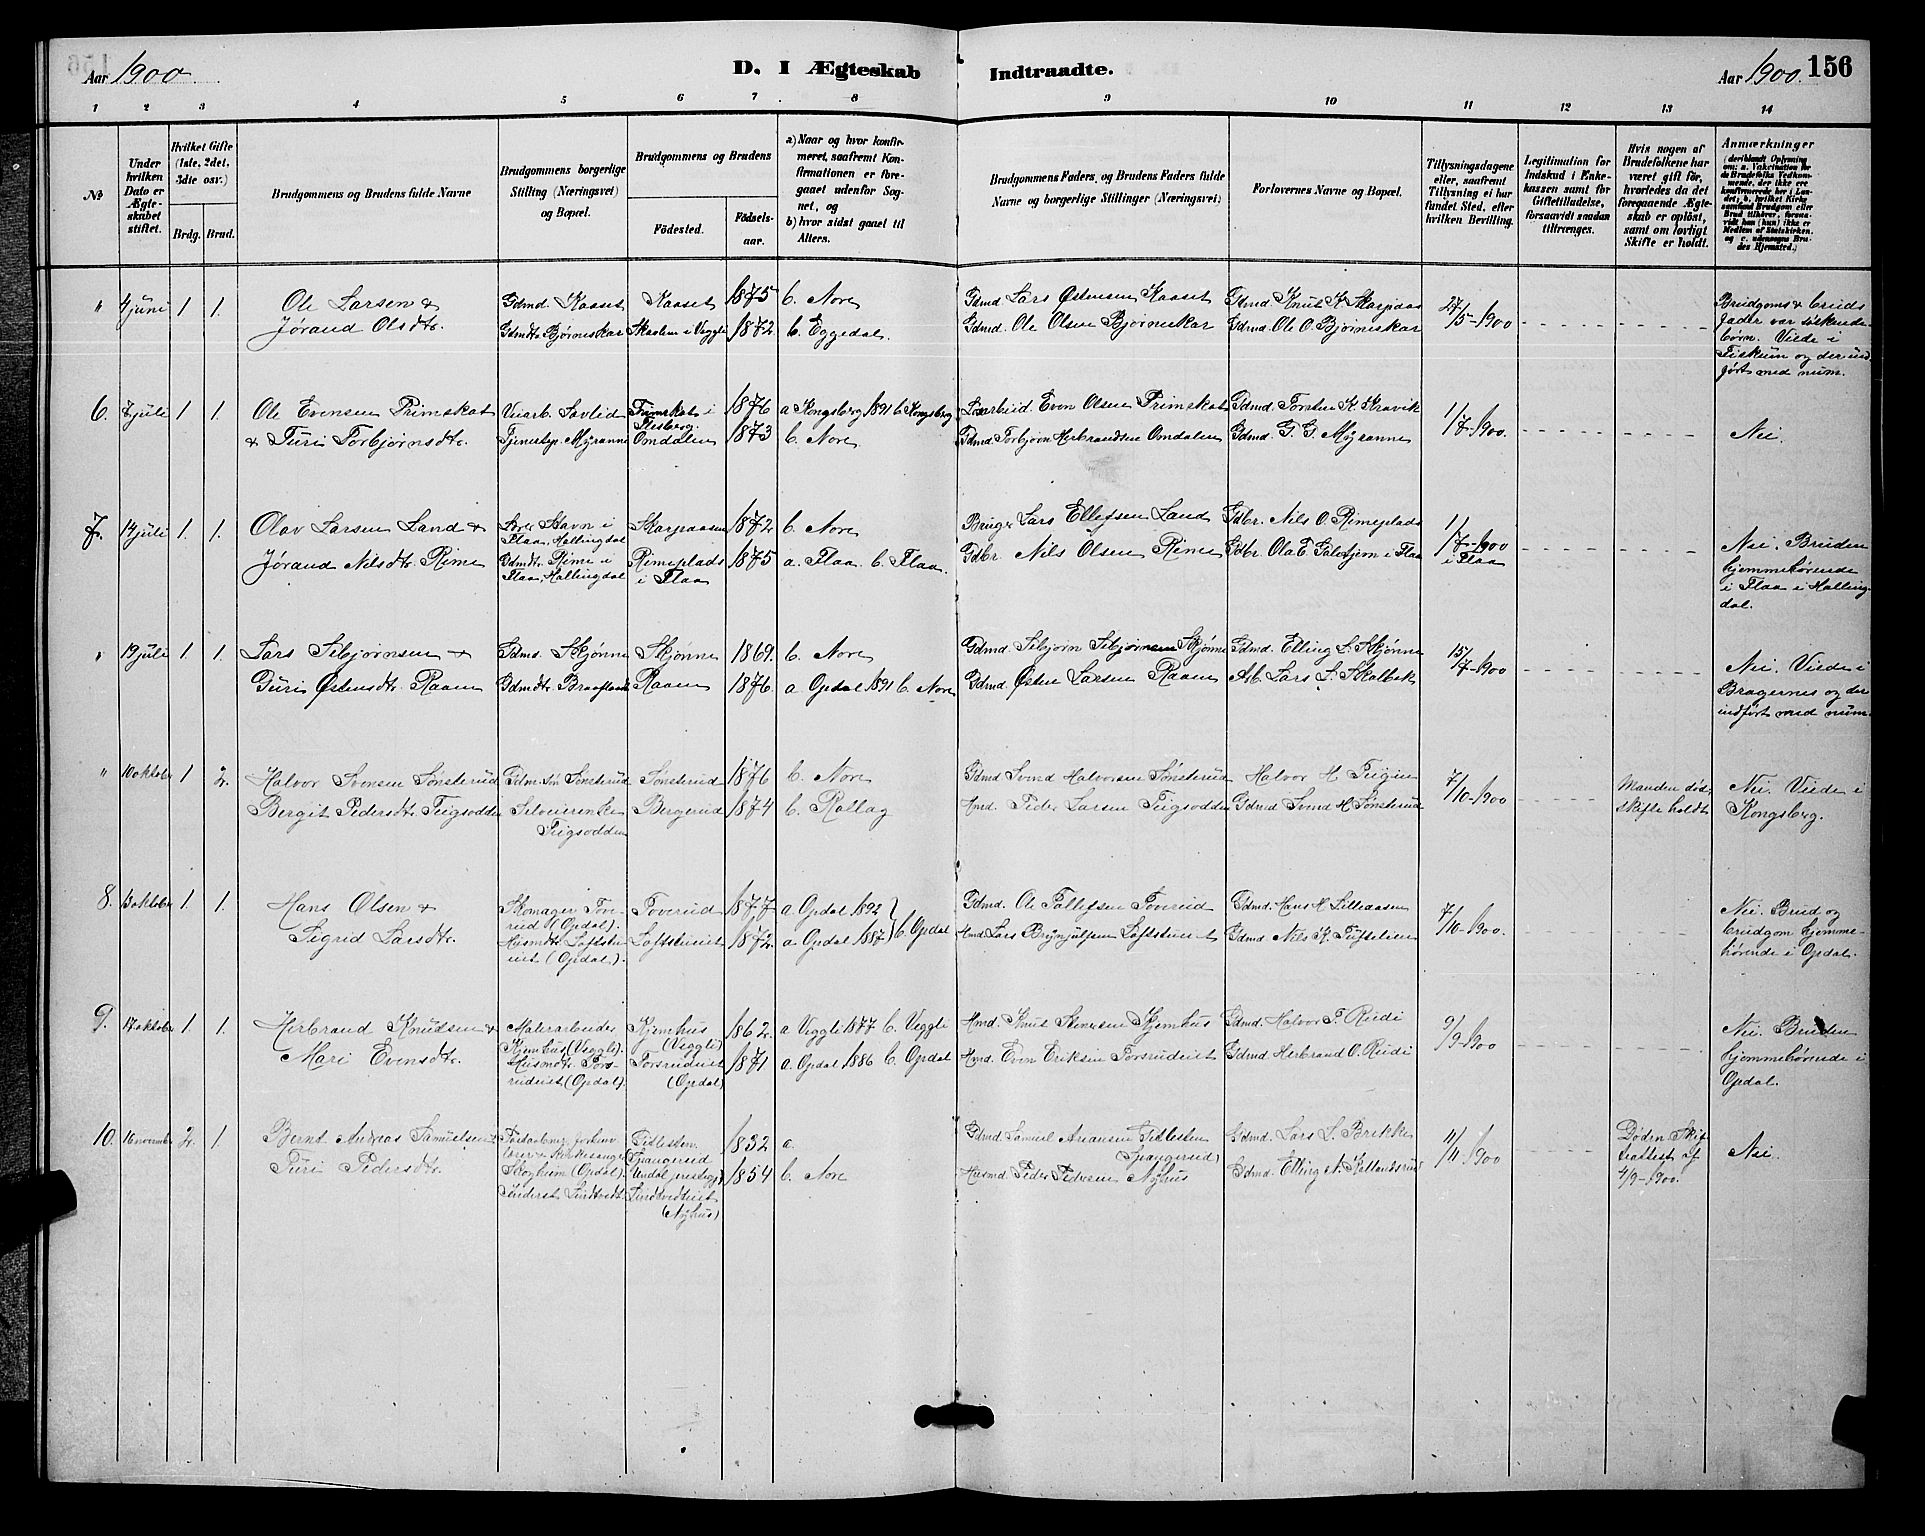 Aar 1900. D. I Ægteskab Indtraadte. Aar 1900. 156
1 2 3 4 5 6 7 8 9 10 11 12 13 14
№
Under hvilken Dato er Ægteskabet stiftet.
Hvilket Gifte (1ste, 2det, 3die osv.)
Brdg. Brud.
Brudgommens og Brudens fulde Navne
Brudgommens borgerlige Stilling (Næringsvei) og Bopæl.
Brudgommens og Brudens
Födested.
Födselsaar.
a) Naar og hvor konfirmeret, saafremt Konfirmationen er foregaaet udenfor Sognet, og
b) hvor sidst gaaet til Alters.
Brudgommens Faders, og Brudens Faders fulde Navne og borgerlige Stillinger (Næringsvei)
Forlovernes Navne og Bopæl.
Tillysningsdagene eller, saafremt Tillysning ei har fundet Sted, efter hvilken Bevilling.
Legitimation for Indskud i Enkekassen samt for Giftetilladelse, forsaavidt saadan tiltrænges.
Hvis nogen af Brudefolkene har været gift før, hvorledes da det foregaaende Ægteskab er oplöst, samt om lovligt Skifte er holdt.
Anmærkninger (deriblandt Oplysning om: a. Vakcination for de Brudefolks Vedkommende, der ikke ere konfirmerede her i Landet; b. hvilket Kirkesamfund Brudgom eller Brud tilhører, forsaavidt han (hun) ikke er Medlem af Statskirken, og c. udensogns Brudes Hjemsted.)
" 4 juni 1 1. Ole Larsen & Gdmd. Kaaset Kaaset 1875 b. Nore Gdmd Lars Østensen Kaaset Gdmd. Knut K. Skarpaas 27/5-1900 Brudgoms & bruds
Jørand Olsdtr. Gdmdtr Bjørneskar Skaalen i Veggli 1872 b. Eggedal. Gdmd. Ole Olsen Bjørneskar Gdmd Ole O. Bjørneskar fader var søskende-
børn. Viede i
Fiskum og der ind
ført med num.
6. 7 juli 1 1. Ole Evensen Primskat Veiarb. Savlid Primskat i Flesberg. 1876 a Kongsberg 1891 b Kongsberg Even Olsen Primskat Gdmd. Torsten K. Kravik 1/7-1900.
& Turi Torbjørnsdtr. Tjenestep. Myranne Omdalen 1873 b. Nore Gdmd. Torbjørn Herbrandsen Omdalen Gdmd. G. G. Myranne Nei.
7. 14 juli 1. 1. Olav Larsen Land & Stavn i Flaa, Hallingdal Skarpaasen 1872 b. Nore Bruger Lars Ellefsen Land Gdbr. Nils O. Rimeplads 1/7-1900
Jørand Nilsdtr. Rime Gdmdtr. Rime i Flaa, Hallingdal Rimeplads i Flaa 1875 a. Flaa b. Flaa. Gdbr Nils Olsen Rime Gdbr Ola E. i Flaa i Flaa Nei. Bruden
hjemmehørende
i Flaa i Halling-
dal.
" 19 juli 1. 1. Lars Sebjørnsen & Gdmd. Skjønne Skjønne 1869. b. Nore Gdmd Sebjørn Sebjørnsen Skjønne Gdmd. Elling L. Skjønne 15/7-1900
Guri Østensdtr. Raaen Gdmdtr. Raaen 1876. a. Opdal 1891 b. Nore Gdmd. Østen Larsen Raaen Arb. Lars L. Skalbek Nei. Viede i
Bragernes og der
indført med num.
" 10 oktober 1 2. Halvor Svensen Sønsterud Gdm. søn Sønsterud Sønsterud 1876 b. Nore Gdmd Svend Halvorsen Sønsterud Halvor H. Teigen 7/10-1900 Manden død, Nei. Viede i
Bergit Pedersdtr. Teigsodden Selveierenke Teigsodden Bergerud 1874 b. Rollag Hmd. Peder Larsen Teigsodden Gdmd Svend H Sønsterud skifte holdt Kongsberg.
8. 13 oktober 1 1. Hans Olsen & Skomager Toverud (Opdal). Toverud 1877 a. Opdal 1892 Gdmd. Ole Tollefsen Toverud Gdmd. Hans H. Lilleaasen 7/10-1900. Nei. Brud og
Sigrid Larsdtr. Husmdtr. Loftstueiet (Opdal). Loftstueiet 1872. a Opdal 1887 b. Opdal Hmd Lars Brynjulfsen Loftstueiet Gdmd Nils K. Tuftelien brudgom hjemme-
hørende i Opdal.
9. 17 oktober 1 1. Herbrand Knudsen & Malerarbeider Kjemhus (Veggli). Kjemhus (Veggli) 1862. a Veggli 1877 b. Veggli Hmd. Knut Steinersen Kjemhus Gdmd. Halvor T. Rudi 9/9-1900 Nei. Bruden
Mari Evensdtr. Husmdtr. Forsrudeiet (Opdal). Forsrudeiet (Opdal) 1871 a. Opdal 1886 b. Opdal Hmd. Even Eriksen Forsrudeiet Gdmd Herbrand O. Rudi hjemmehørende i
Opdal.
10. 16 novembr 2. 1. Bernt Andreas Samuelsen & Skoglum (Opdal). 1832 a. Gdmd. Samuel Gdmd. Lars L. Brekke 11/11-1900 Døden. Skif
Turi Pedersdtr. Sindtvedteiet (Nyhus) 1854 b. Nore Husmd. Peder Pedersen Nyhus Gdmd. Elling N. teattest af Nei.
4/9-1900.